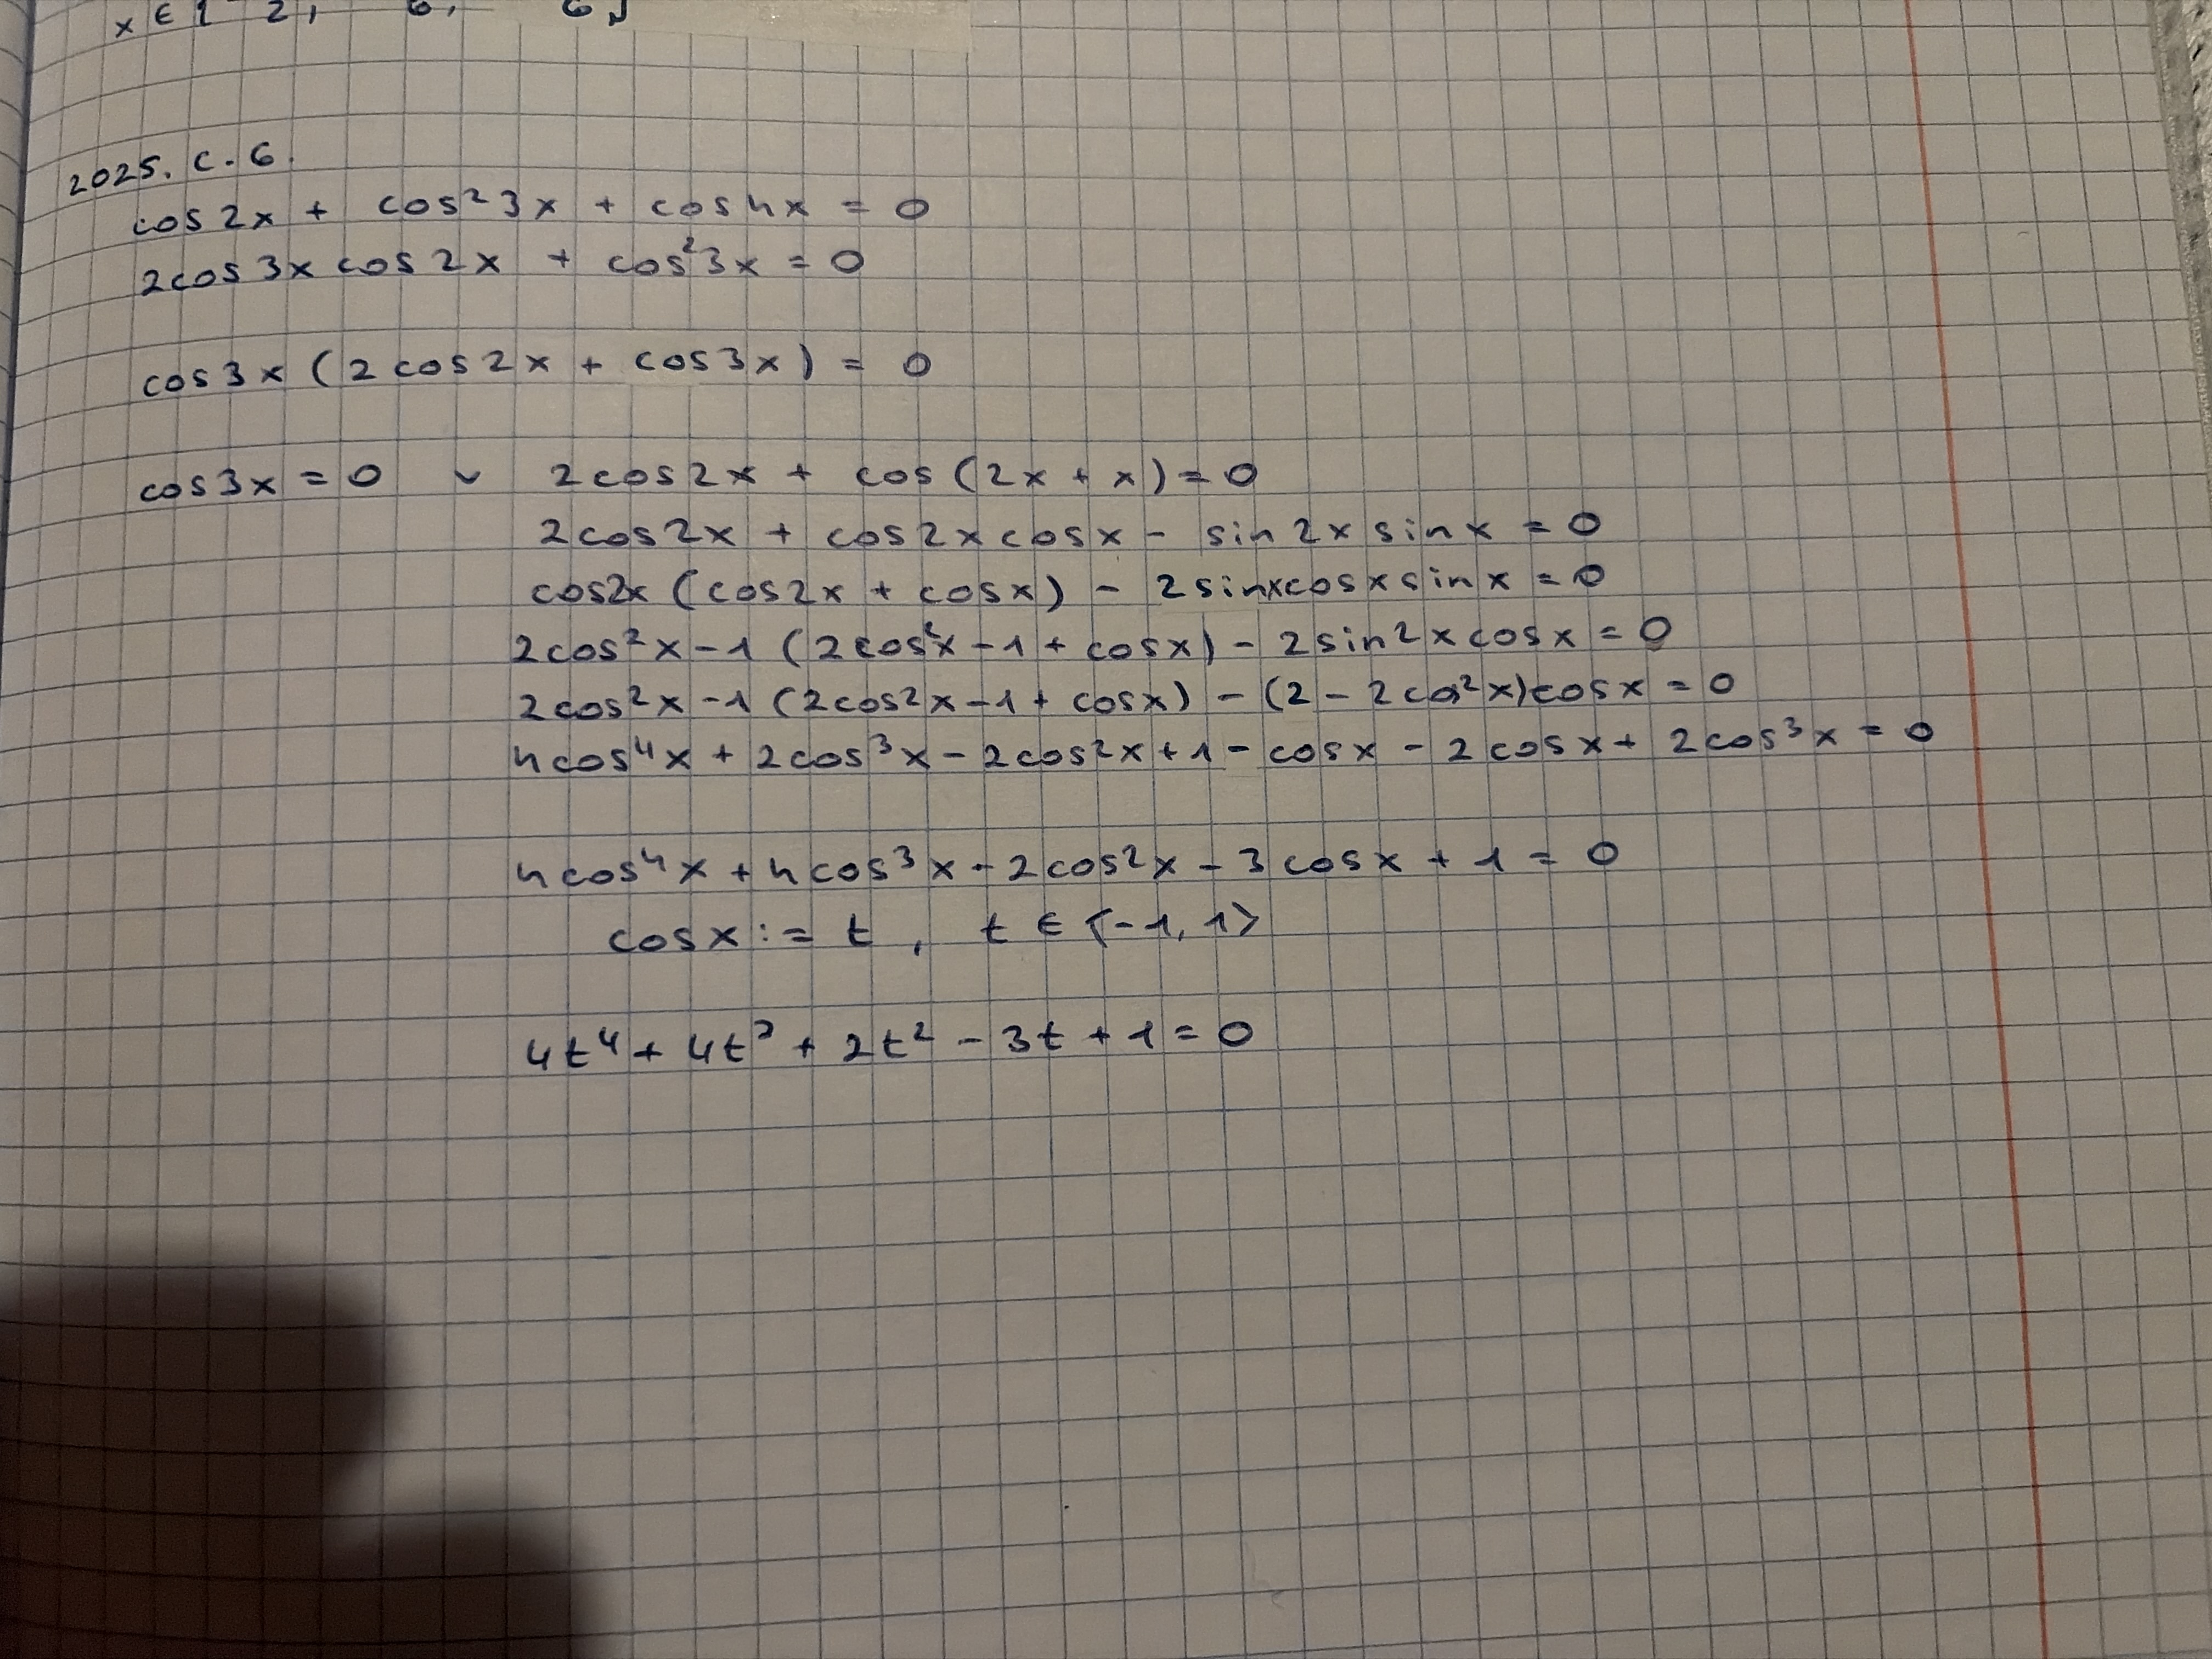 x ∈ { 2, 6, 6 }
2025. C. 6.
cos2x + cos²3x + cos4x = 0
2cos3x cos2x + cos²3x = 0
cos3x (2cos2x + cos3x) = 0
cos3x = 0 ∨ 2cos2x + cos(2x + x) = 0
2cos2x + cos2x cosx - sin2x sinx = 0
cos2x (cos2x + cosx) - 2sinxcosx sinx = 0
2cos²x - 1 (2cos²x - 1 + cosx) - 2sin²x cosx = 0
2cos²x - 1 (2cos²x - 1 + cosx) - (2 - 2cos²x)cosx = 0
4cos⁴x + 2cos³x - 2cos²x + 1 - cosx - 2cosx + 2cos³x = 0
4cos⁴x + 4cos³x - 2cos²x - 3cosx + 1 = 0
cosx := t , t ∈ ⟨-1, 1⟩
4t⁴ + 4t³ + 2t² - 3t + 1 = 0